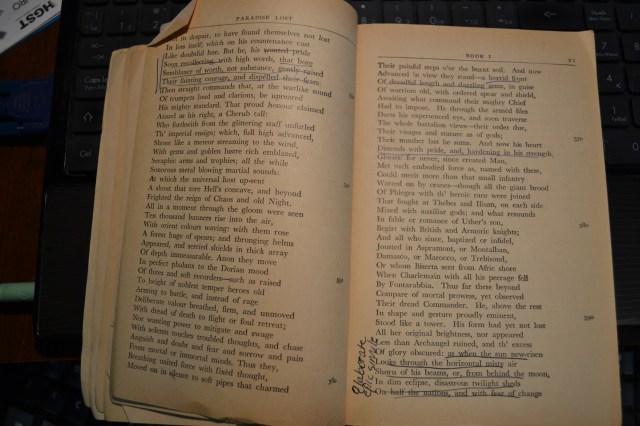 HGST
PARADISE LOST
in despair, to have found themselves not lost
In loss itself; which on his countenance cast
Like doubtful hue. But he, his wonted pride
Soon recollecting, with high words, that bore
Semblance of worth, not substance, gently raised
Their fainting courage, and dispelled their fears:
Then straight commands that, at the warlike sound
Of trumpets loud and clarions, be upreared
His mighty standard. That proud honour claimed
Azazel as his right, a Cherub tall:
Who forthwith from the glittering staff unfurled
Th' imperial ensign; which, full high advanced,
Shone like a meteor streaming to the wind,
With gems and golden lustre rich emblazed,
Seraphic arms and trophies; all the while
Sonorous metal blowing martial sounds:
At which the universal host up-sent
A shout that tore Hell's concave, and beyond
Frighted the reign of Chaos and old Night.
All in a moment through the gloom were seen
Ten thousand banners rise into the air,
With orient colours waving: with them rose
A forest huge of spears; and thronging helms
Appeared, and serried shields in thick array
Of depth immeasurable. Anon they move
In perfect phalanx to the Dorian mood
Of flutes and soft recorders—such as raised
550
To height of noblest temper heroes old
Arming to battle, and instead of rage
Deliberate valour breathed, firm, and unmoved
With dread of death to flight or foul retreat;
Nor wanting power to mitigate and swage
With solemn touches troubled thoughts, and chase
Anguish and doubt and fear and sorrow and pain
From mortal or immortal minds. Thus they,
Breathing united force with fixèd thought,
560
Moved on in silence to soft pipes that charmed
BOOK I
21
Their painful steps o'er the burnt soil. And now
Advanced in view they stand—a horrid front
Of dreadful length and dazzling arms, in guise
Of warriors old, with ordered spear and shield,
Awaiting what command their mighty Chief
Had to impose. He through the armèd files
Darts his experienced eye, and soon traverse
The whole battalion views—their order due,
Their visages and stature as of gods;
570
Their number last he sums. And now his heart
Distends with pride, and, hardening in his strength,
Glories: for never, since created Man,
Met such embodied force as, named with these,
Could merit more than that small infantry
Warred on by cranes—though all the giant brood
Of Phlegra with th' heroic race were joined
That fought at Thebes and Ilium, on each side
Mixed with auxiliar gods; and what resounds
In fable or romance of Uther's son,
580
Begirt with British and Armoric knights;
And all who since, baptized or infidel,
Jousted in Aspramont, or Montalban,
Damasco, or Marocco, or Trebisond,
Or whom Biserta sent from Afric shore
When Charlemain with all his peerage fell
By Fontarabbia. Thus far these beyond
Compare of mortal prowess, yet observed
Their dread Commander. He, above the rest
In shape and gesture proudly eminent,
590
Stood like a tower. His form had yet not lost
All her original brightness, nor appeared
Less than Archangel ruined, and th' excess
Of glory obscured: as when the sun new-risen
Looks through the horizontal misty air
Shorn of his beams, or, from behind the moon,
In dim eclipse, disastrous twilight sheds
On half the nations, and with fear of change
Elaborate
epic simile